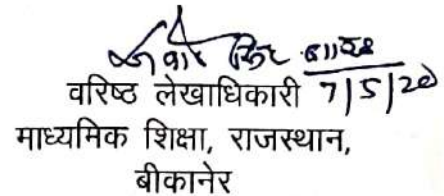 वरिष्ठ लेखाधिकारी 7/5/20
माध्यमिक शिक्षा, राजस्थान,
बीकानेर